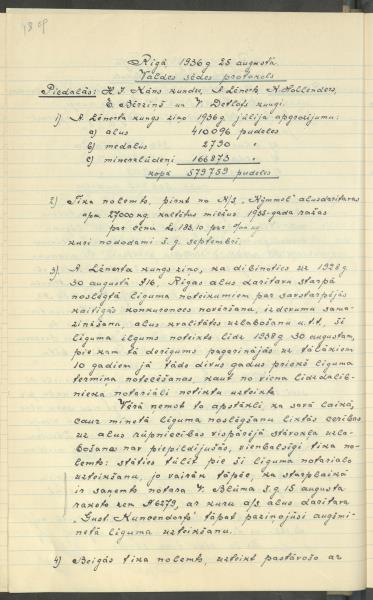 Rīgā 1936g 25 augustā.
Valdes sēdes protokols
Piedalās: H. J. Kāns kundze, A. Lēnerts, N. Hohlenders,
E. Bērziņš un V. Detlofs kungi.
1) A. Lēnerta kungs ziņo 1936g jūlija apgrozījumu:
a) alus 410096 pudeles
b) medalus 2790 "
c) minerālūdeņi 166873 "
kopā 579759 pudeles
2) Tika nolemts, pirkt no A/S. "Ķimmel" alusdarītavas
apm 27000 kg kaltētus miežus 1935-gada ražas
par cenu Ls. 185.10 par
kuri nododami š. g. septembrī.
3) A. Lēnerta kungs ziņo, ka dibinoties uz 1928g
30 augustā Rīgas alus darītavu starpā
noslēgtā līguma noteikumiem par savstarpējās
kaitīgās konkurences novēršanu, izdevumu sama-
zināšanu, alus kvalitātes uzlabošanu u.t.t., šī
līguma ilgums noteikts līdz 1938g 30 augustam,
pie kam tā derīgums pagarinājās uz tālākiem
10 gadiem ja tāds divus gadus priekš līguma
termiņa notecēšanas, kaut no viena līdzdalīb-
nieka notariāli netiktu uzteikts.
Vērā ņemot to apstākli ka savā laikā,
caur minētā līguma noslēgšanu liktās cerības
uz alus rūpniecības vispārējā stāvokļa uzla-
bošanu nav piepildījušās, vienbalsīgi tika no-
lemts: stāties tūlīt pie šī līguma notarialo
uzteikšanu, jo vairāk tāpēc, ka starplaikā
ir saņemts notara V. Blūma š. g. 15 augusta
raksts zem № 6279, ar kuru a/s alus darītava
"Gust. Kuncendorfs" tāpat paziņojusi augšmi-
nētā līguma uzteikšanu.
4) Beigās tika nolemts, uzteikt pastāvošo ar